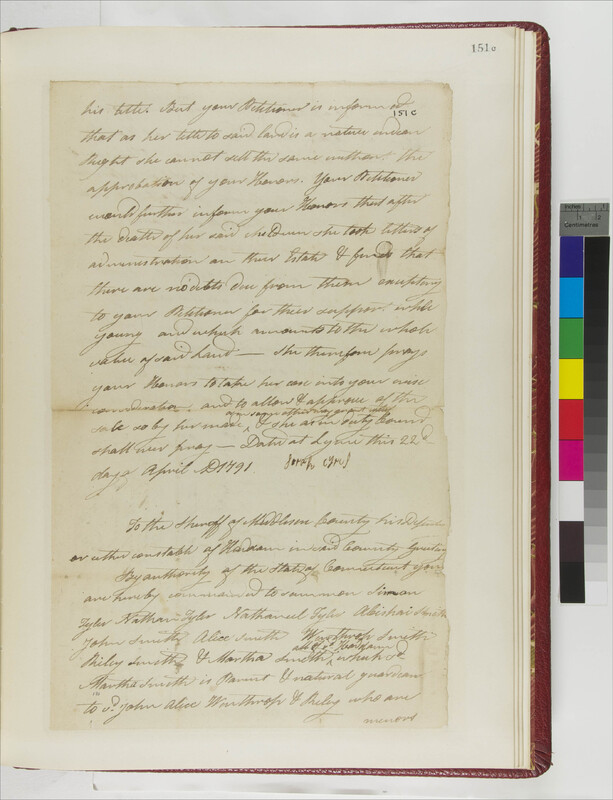 151a
151 c
his title. But your Petitioner is informed
that as her title to said land is a native indian
Right she cannot sell the same without the
approbation of your Honors. Your Petitioner
would further inform your Honors that after
the death of her said children she took letters of
administration on their Estate & finds that
there are no debts due from them excepting
to your Petitioner for their support while
young and which amounts to the whole
value of said Land — She therefore prays
your Honors to take her case into your wise
consideration and to allow & approve of the
sale so by her made & she as in duty bound
shall ever pray — Dated at Lyme this 22d
day of April AD 1791
To the Sheriff of Middlesex County his Deputy
or either constable of Haddam in said County Greeting
By authority of the State of Connecticut you
are hereby commanded to summon Simon
Tyler Nathan Tyler Nathaniel Tyler Abishai Smith
John Smith Alice Smith Winthrop Smith
all of sd. Haddam
Riley Smith & Martha Smith, which sd.
Martha Smith is Parent & natural guardian
to sd. John Alice Winthrop & Riley who are
minors
Inches
Centimetres